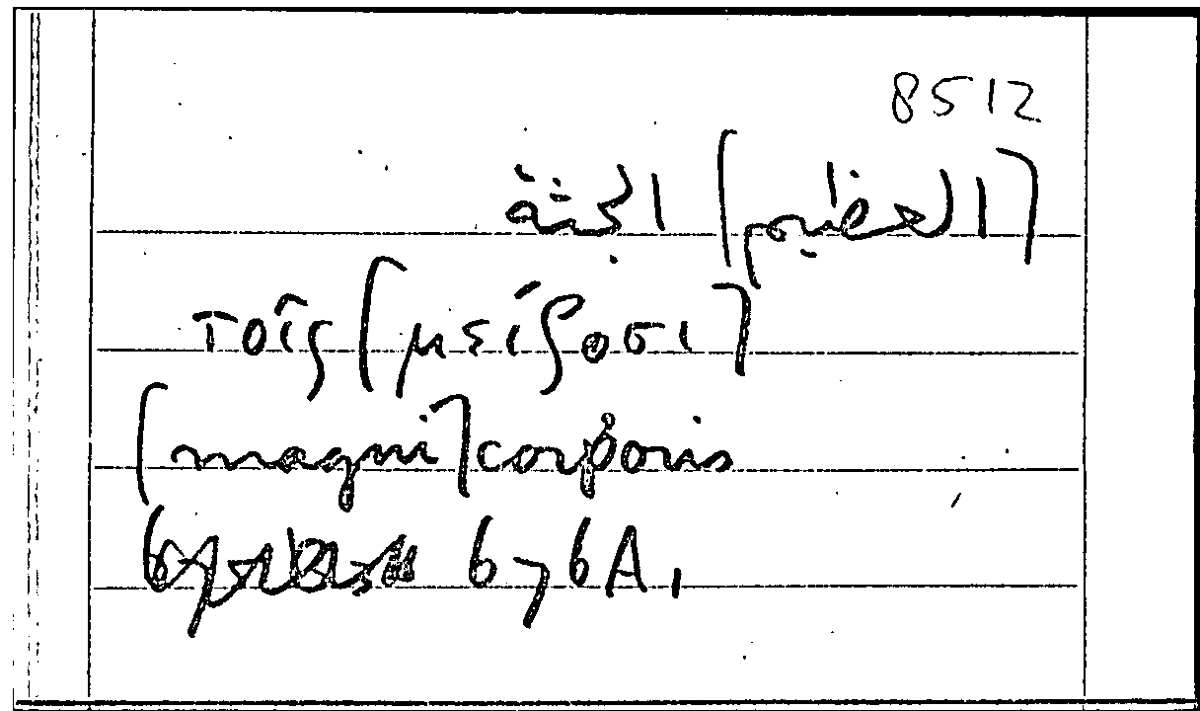 8512
[العظيم] الجثة
τοῖς [μείζοσι]
[magni] corporis
676A,